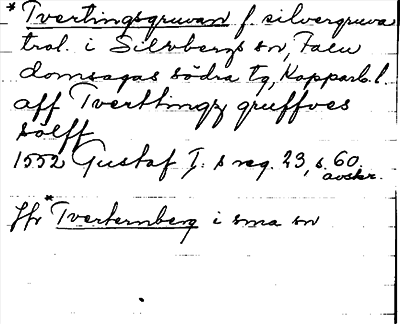 *Tvertingsgruvan f silvergruva
trol. i Silvbergs sn, Falu
domsagas södra tg, Kopparb. l.
aff Tverttingz gruffves
sölff
1552 Gustaf I:s reg. 23, s. 60.
avskr.
Jfr *Tverternberg i sma sn